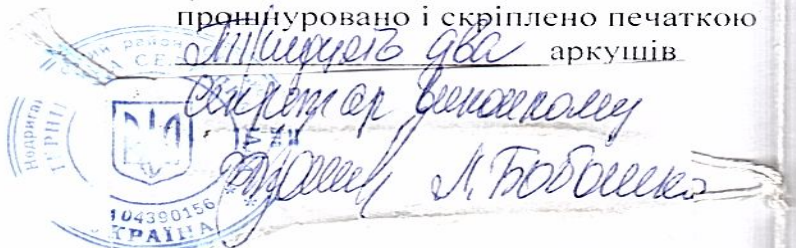 прошнуровано і скріплено печаткою
Тридцять два аркушів
Секретар виконкому
Л. Бобошко
04390156
УКРАЇНА